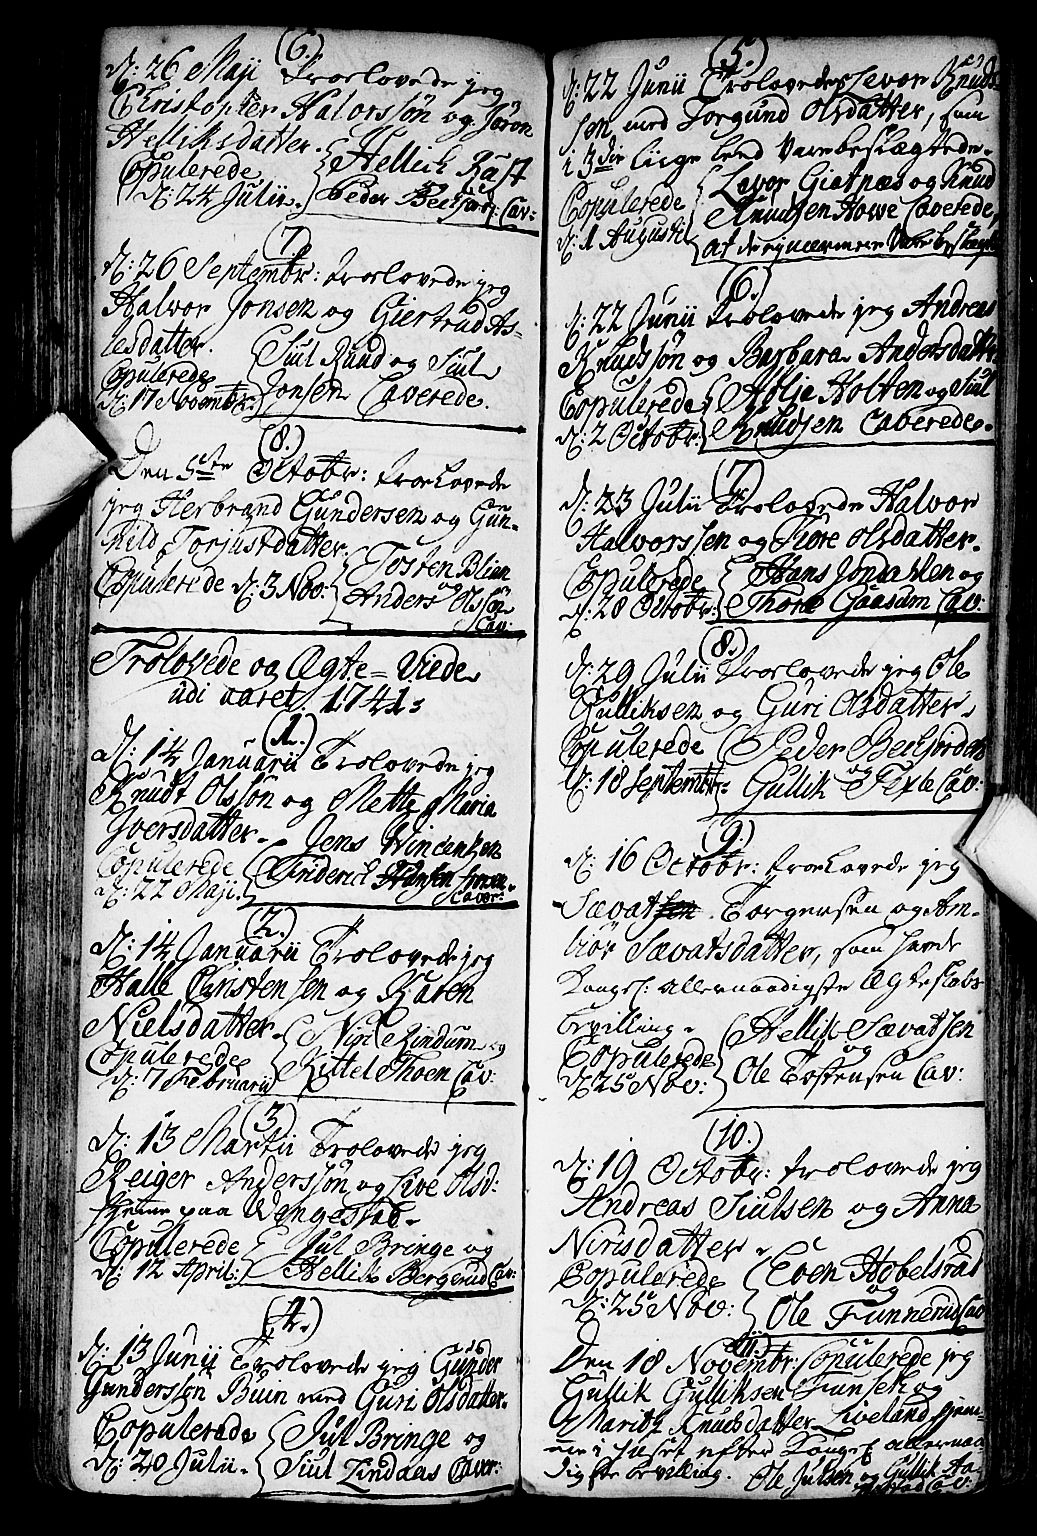 (6.)
d: 26 Maji Troelovede jeg
Christopher Halorssøn og Jøron
Helliksdatter.
Copulerede
d: 24 Julii.
Hellich Rast
Peder Cav:
(7.)
d: 26 Septembr: troelovede jeg
Halvor Jonsen og Giertrud As-
lesdatter.
Copulerede
d: 17 Novembr:
Siul Ruud og Siul
Jonsen Caverede.
(8.)
Den 5te Octobr: troelovede
jeg Herbrand Gundersen og Gun-
hild Torjusdatter.
Copulerede d: 3 Nov:
Tosten Blien
og
Anders Olssøn
Cav:
Trolovede og Ægte-Viede
udi aaret 1741:
(1.)
d: 14 Januarii Trolovede jeg
Knudt Olssøn og Mette Maria
Iversdatter.
Copulerede
d: 22 Maji.
Jens Wincentzen
Friderich Hansen
Caver:
(2.)
d: 14 Januarii Trolovede jeg
Halle Christensen og Karen
Nielsdatter.
Copulerede
d: 7 Februarii
og
Kittel Thoen Cav:
(3.)
d: 13 Martii Trolovede jeg
Reiger Anderssøn og Live Olsd:
paa Wengestad.
Copulerede
d: 12 April:
Jul Bringe og
Hellik Bergerud Cav:
(4.)
d: 13 Junii Trolovede jeg Gunder
Gunderssøn Buin med Guri Olsdatter.
Copulerede
d: 20 Julii.
Jul Bringe og
Siul Lindaas Caver:
(5.)
d: 22 Junii Troloveder Levor Knud-
sen med Torgund Olsdatter, som
i 3die lige leed vare beslægtede.
Copulerede
d: 1 Augusti
Levor Gietnæs og Knud
Knudsen Howe Caverede,
at de ej nærmere
(6.)
d: 22 Junii Trolovede jeg Andreas
Knudssøn og Barbara Andersdatter
Copulerede
d: 2 Octobr:
Holje Holten og Siul
Knudsen Caverede.
(7.)
d: 23 Julii Trolovede Halvor
Halvorssen og Tore Olsdatter.
Copulerede
d: 28 Octobr:
Hans og
Thore Gaasum Cav:
(8.)
d: 29 Julii Troelovede jeg Ole
Gulliksen og Guri Olsdatter.
Copulerede
d: 18 Septembr:
Peder Beckjorden
og
Gullik Texle Cav:
(9.)
d: 16 Octobr: troelovede jeg
Sævat Torgersen og Am-
biør Sævatsdatter, som havde
Konge: allernaadigste Ægteskabs
bevilling.
Copulerede
d: 25 Nov:
Hellik Sævatsen
og
Ole Tostensen Cav:
(10.)
d: 19 Octobr: trolovede jeg
Andreas Siulsen og Anna
Nirisdatter.
Copulerede
d: 25 Nov:
Even Hobelsrud
og
Ole Funnerud Cav
(11.)
Den 18 Novembr: Copulerede jeg
Gullik Gulliksen Funset og
Marit Knudsdatter Liveland hjem-
me i huset efter Konge: allernaa-
digste bevilling.
Ole Julsen og Gullik
Cav: